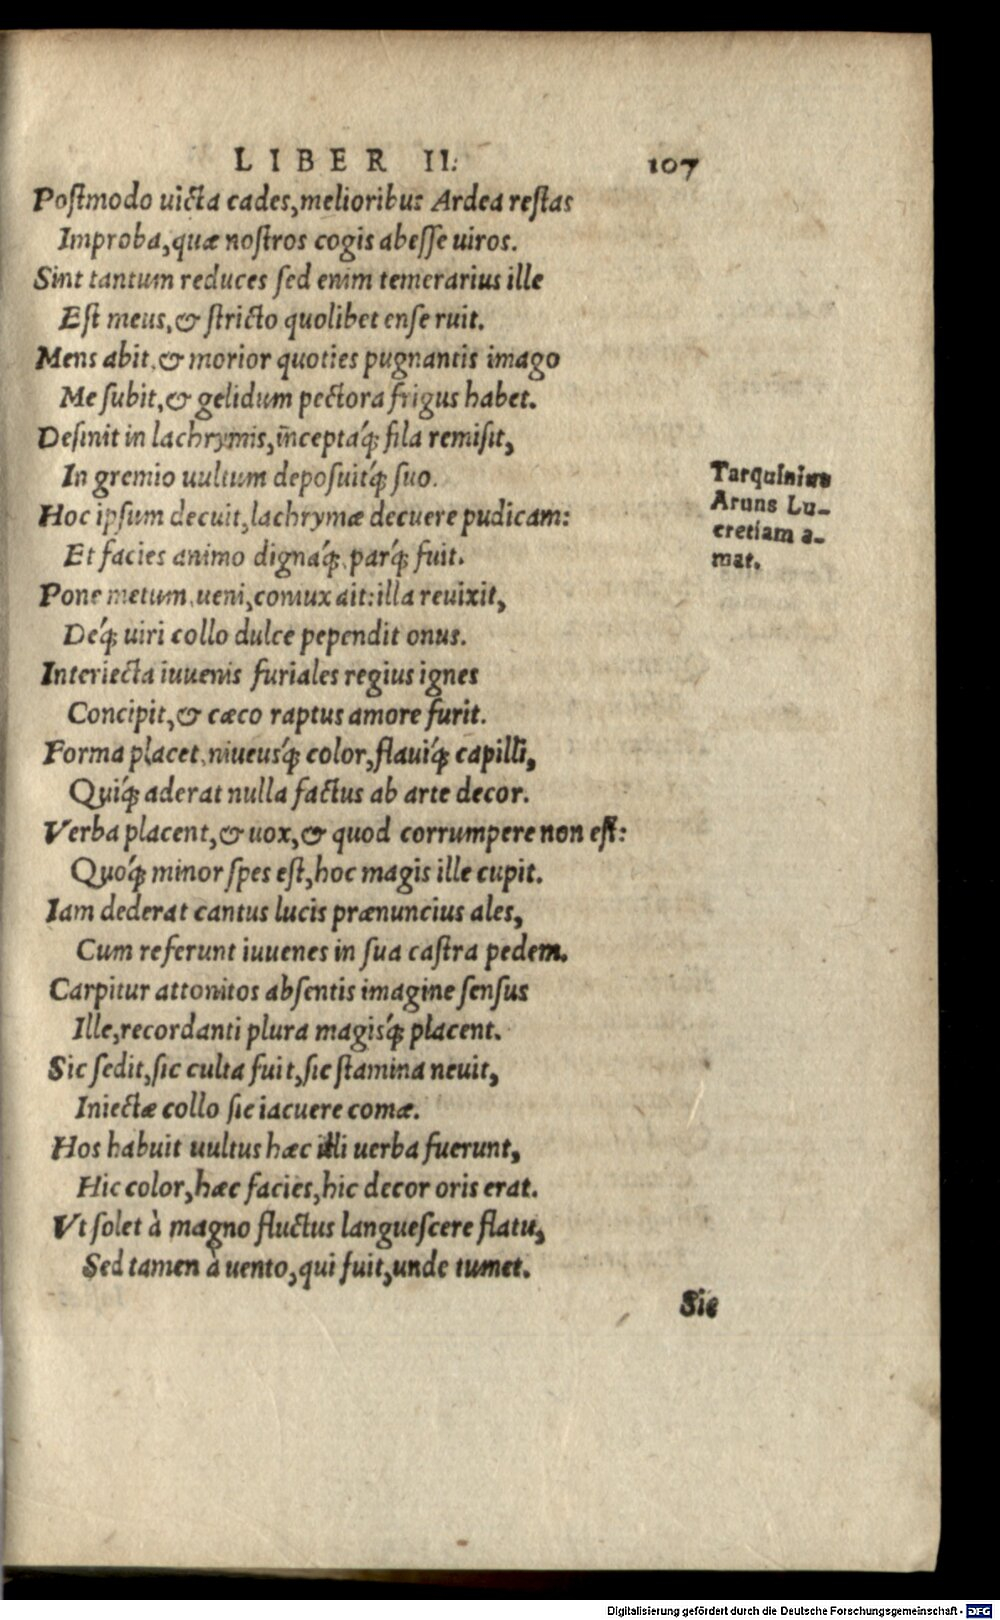 LIBER II. 107
Poſtmodo uicta cades,melioribus Ardea reſtas
Improba,quæ noſtros cogis abeſſe uiros.
Sint tantum reduces ſed enim temerarius ille
Eſt meus,& ſtricto quolibet enſe ruit.
Mens abit,& morior quoties pugnantis imago
Me ſubit,& gelidum pectora frigus habet.
Deſinit in lachrymis,inceptaq́; fila remiſit,
In gremio uultum depoſuitq́; ſuo.
Hoc ipſum decuit,lachrymæ decuere pudicam:
Et facies animo dignaq́;,parq́; fuit.
Pone metum,ueni,coniux ait:illa reuixit,
Deq́; uiri collo dulce pependit onus.
Interiecta iuuenis furiales regius ignes
Concipit,& cæco raptus amore furit.
Forma placet,niueusq́; color,flauiq́; capilli,
Quiq́; aderat nulla factus ab arte decor.
Verba placent,& uox,& quod corrumpere non eſt:
Quoq́; minor ſpes eſt,hoc magis ille cupit.
Iam dederat cantus lucis prænuncius ales,
Cum referunt iuuenes in ſua caſtra pedem.
Carpitur attonitos abſentis imagine ſenſus
Ille,recordanti plura magisq́; placent.
Sic ſedit,ſic culta fuit,ſic ſtamina neuit,
Iniectæ collo ſic iacuere comæ.
Hos habuit uultus hæc illi uerba fuerunt,
Hic color,hæc facies,hic decor oris erat.
Vt ſolet à magno fluctus langueſcere flatu,
Sed tamen à uento,qui fuit,unde tumet.
Sic
Tarquinius
Aruns Lu-
cretiam a-
mat.
Digitalisierung gefördert durch die Deutsche Forschungsgemeinschaft - DFG